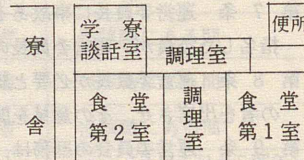 寮舎
学寮
談話室
調理室
便所
食堂
第2室
調理室
食堂
第1室